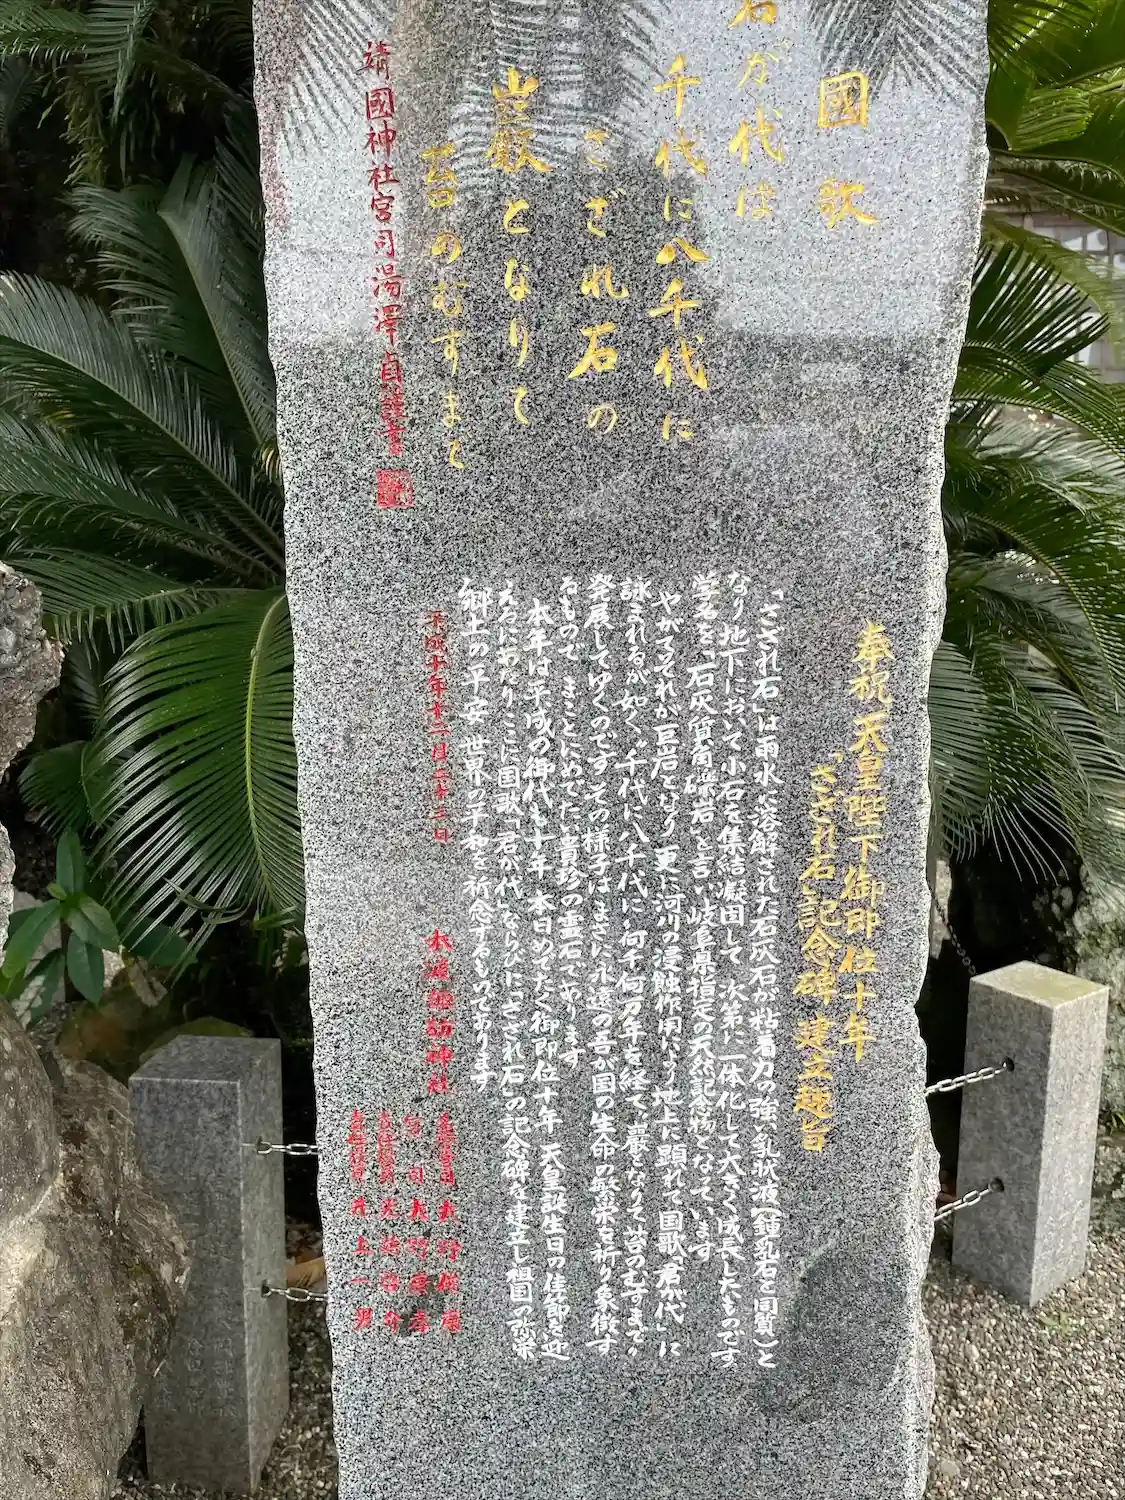 國歌
君が代は
千代に八千代に
さざれ石の
巌となりて
苔のむすまで
靖國神社宮司湯澤貞謹書
奉祝天皇陛下御即位十年
「さざれ石」記念碑建立趣旨
「さざれ石」は雨水に溶解された石灰石が粘着力の強い乳状液(鍾乳石と同質)と
なり地下において小石を集結凝固して、次第に一体化して大きく成長したものです
学名を「石灰質角礫岩」と言い岐阜県指定の天然記念物となっています
やがてそれが巨岩となり更に河川の浸蝕作用により地上に顕れて国歌「君が代」に
詠まれるが如く〝千代に八千代に〟何千何万年を経て〝巌となりて苔のむすまで〟
発展してゆくのですその様子はまさに永遠の吾が国の生命の繁栄を祈り象徴す
るもので まことにめでたい貴珍の霊石であります
本年は平成の御代も十年 本日めでたく御即位十年 天皇誕生日の佳節を迎
えるにあたりここに国歌「君が代」ならびに「さざれ石」の記念碑を建立し祖国の弥栄
郷土の平安 世界の平和を祈念するものであります
平成十年十二月二十三日
神社
宮司
井上一男